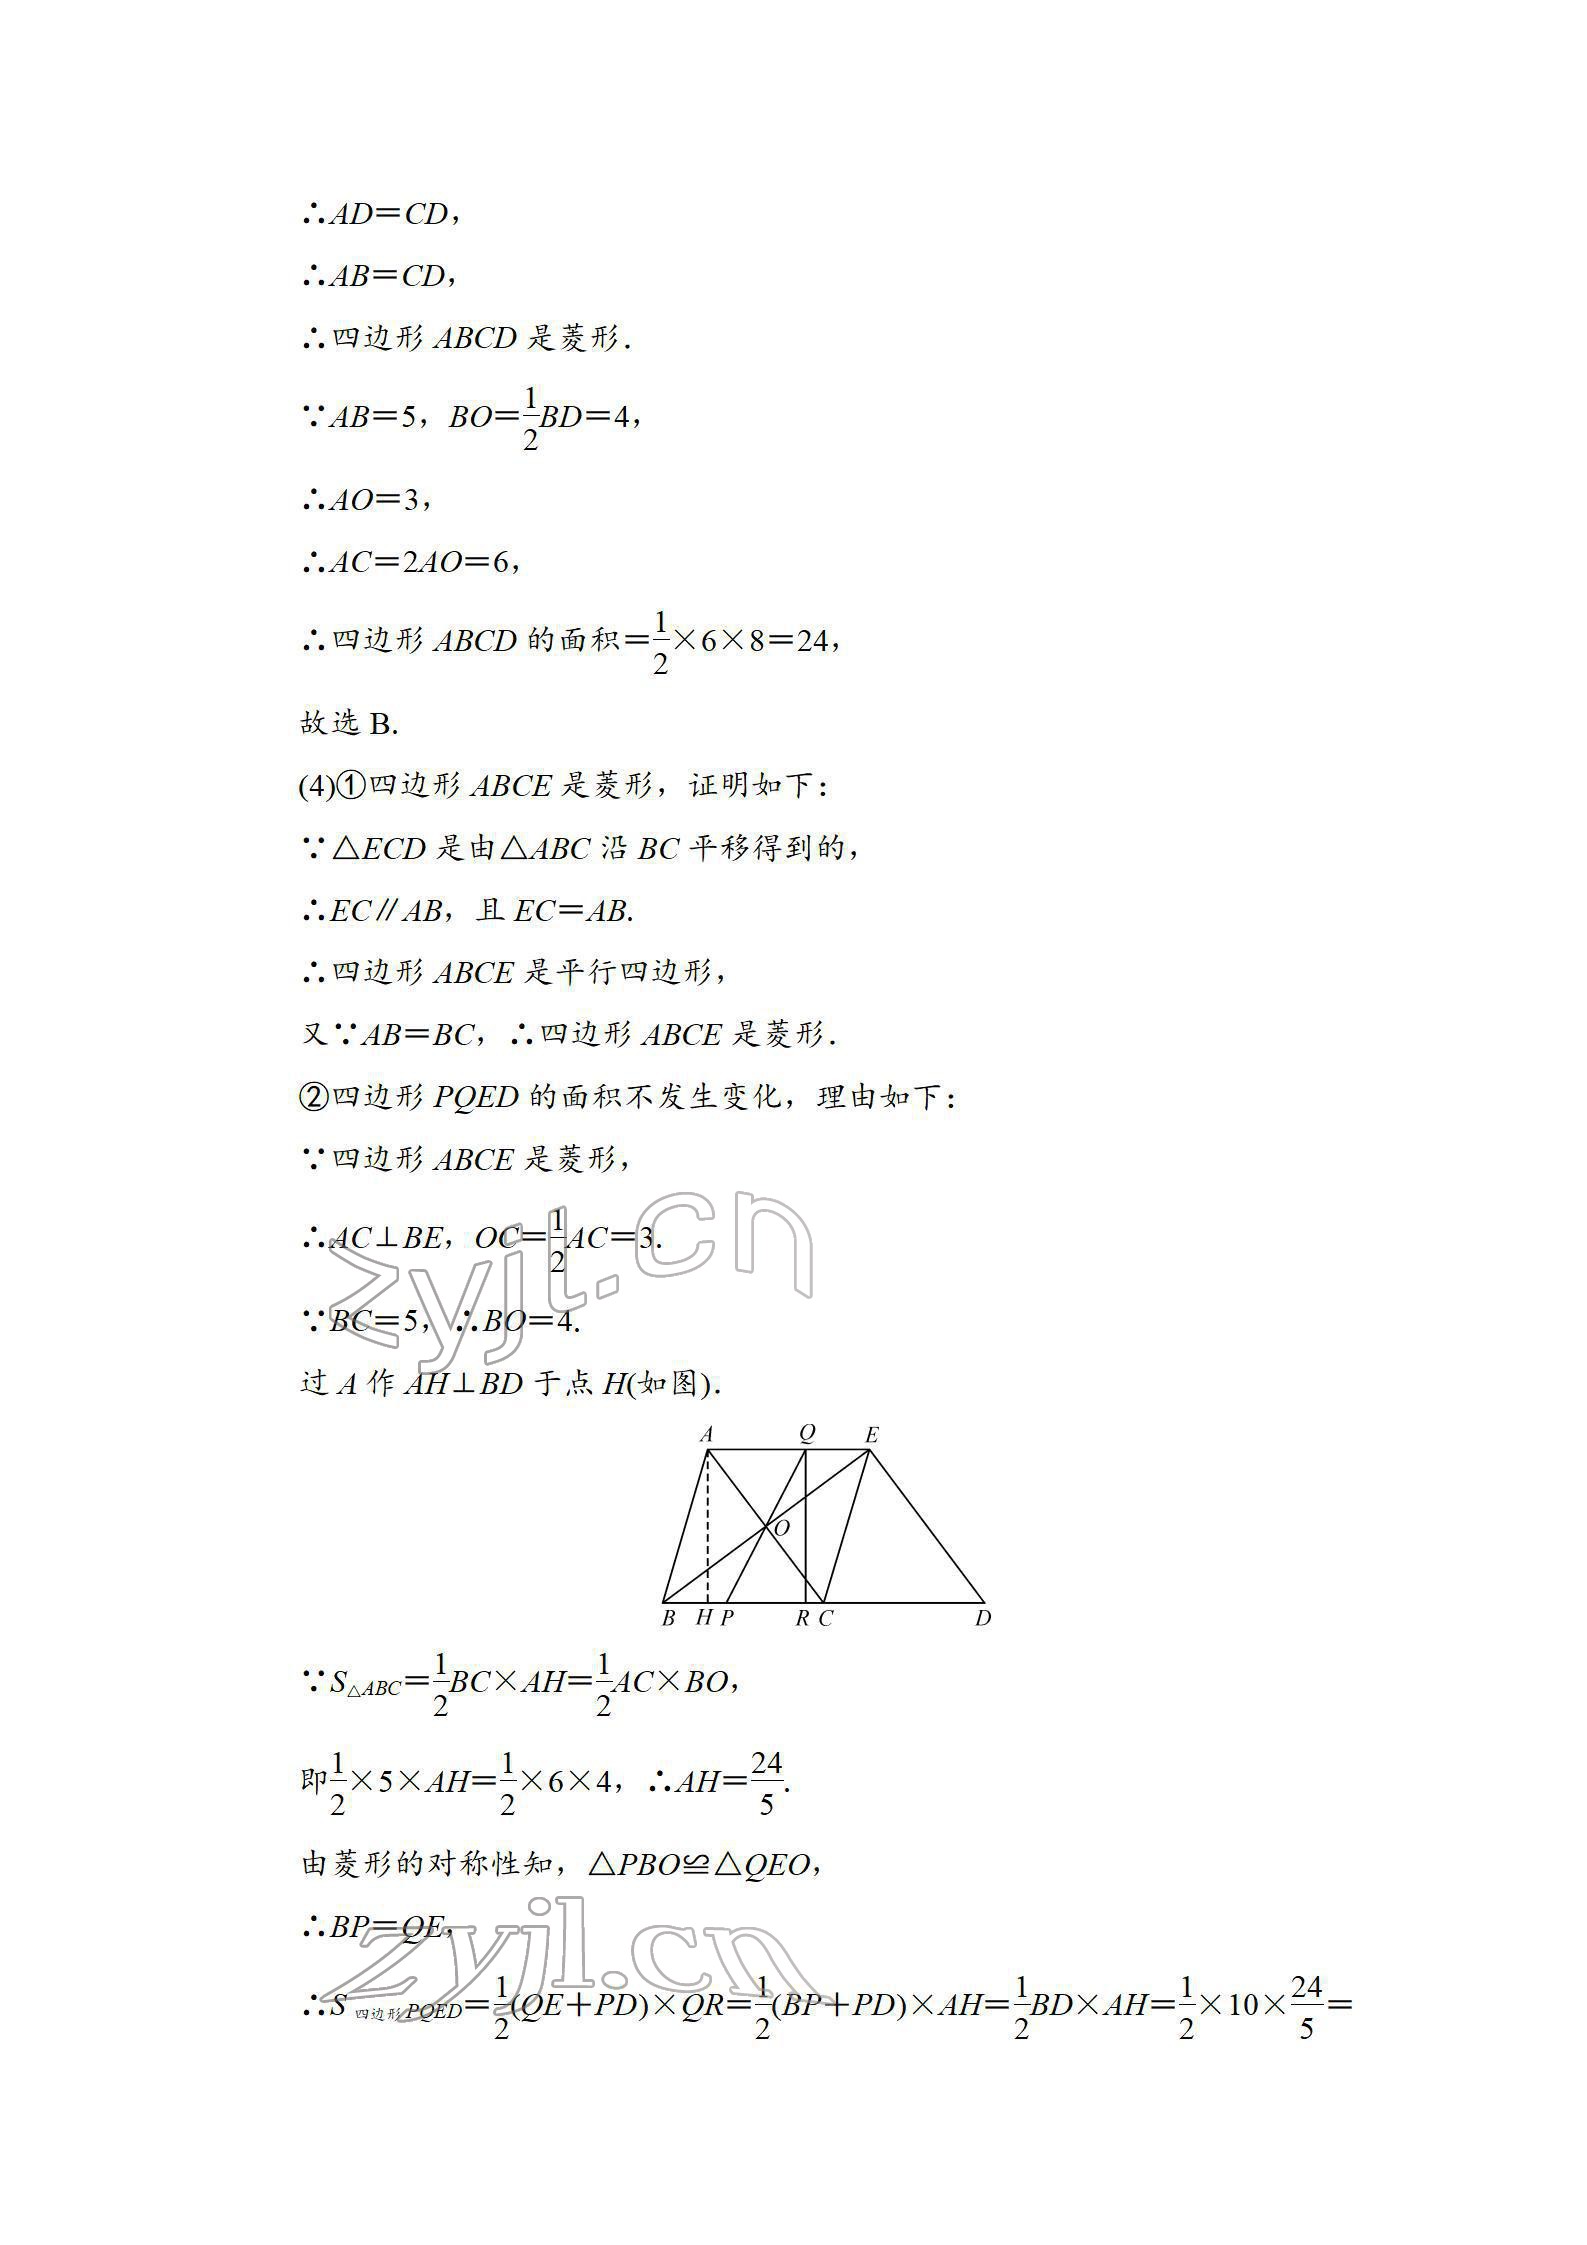 ∴AD=CD，
∴AB=CD，
∴四边形 ABCD 是菱形．
∵AB=5，BO=1/2BD=4，
∴AO=3，
∴AC=2AO=6，
∴四边形 ABCD 的面积=1/2×6×8=24，
故选 B.
(4)①四边形 ABCE 是菱形，证明如下：
∵△ECD 是由△ABC 沿 BC 平移得到的，
∴EC∥AB，且 EC=AB.
∴四边形 ABCE 是平行四边形，
又∵AB=BC，∴四边形 ABCE 是菱形．
②四边形 PQED 的面积不发生变化，理由如下：
∵四边形 ABCE 是菱形，
∴AC⊥BE，OC=1/2AC=3.
∵BC=5，∴BO=4.
zyjl.cn
过 A 作 AH⊥BD 于点 H(如图)．
A Q E
O
B H P R C D
∵S△ABC=1/2BC×AH=1/2AC×BO，
即1/2×5×AH=1/2×6×4，∴AH=24/5.
由菱形的对称性知，△PBO≌△QEO，
∴BP=QE，
zyjl.cn
∴S四边形PQED=1/2(QE+PD)×QR=1/2(BP+PD)×AH=1/2BD×AH=1/2×10×24/5=